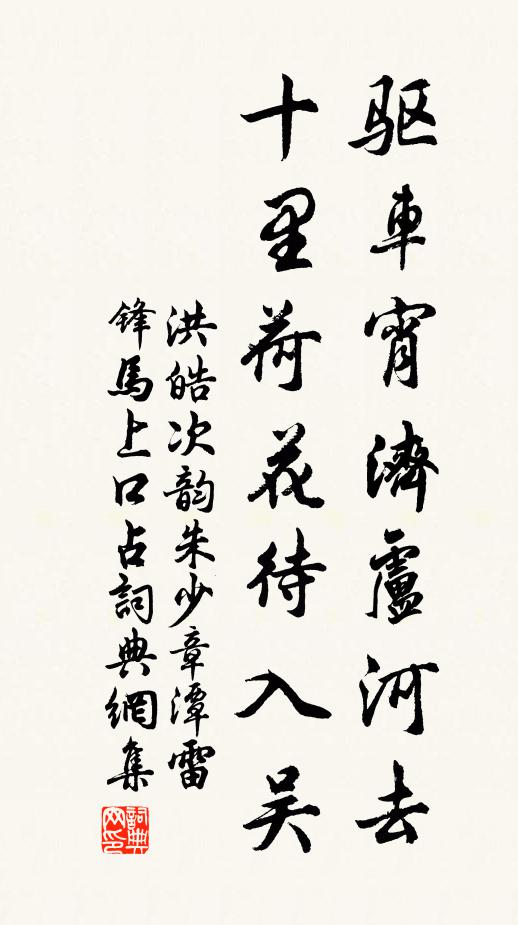 驱車宵濟盧河去
十里荷花待入吴
洪皓次韵朱少章潭雷
鋒馬上口占詞典網集
詞典網印